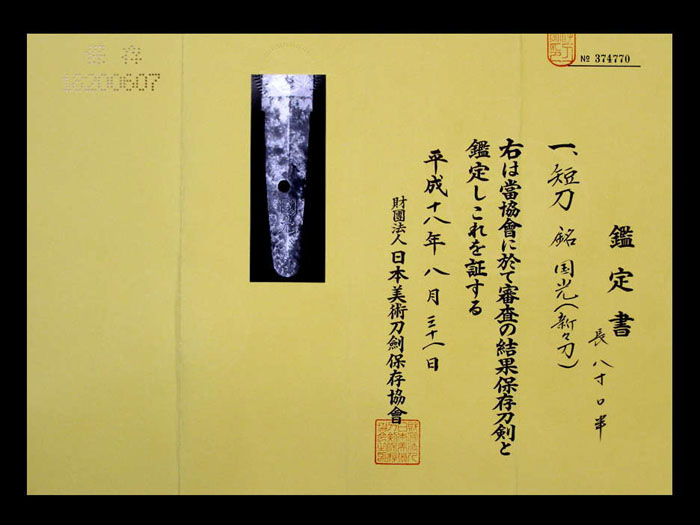 № 374770
鑑定書
一、短刀 銘 国光(新々刀)
長 八寸口半
右は當協會に於て審査の結果保存刀剣と
鑑定しこれを証する
平成十八年八月三十一日
財團法人日本美術刀劍保存協會
保存
16200607